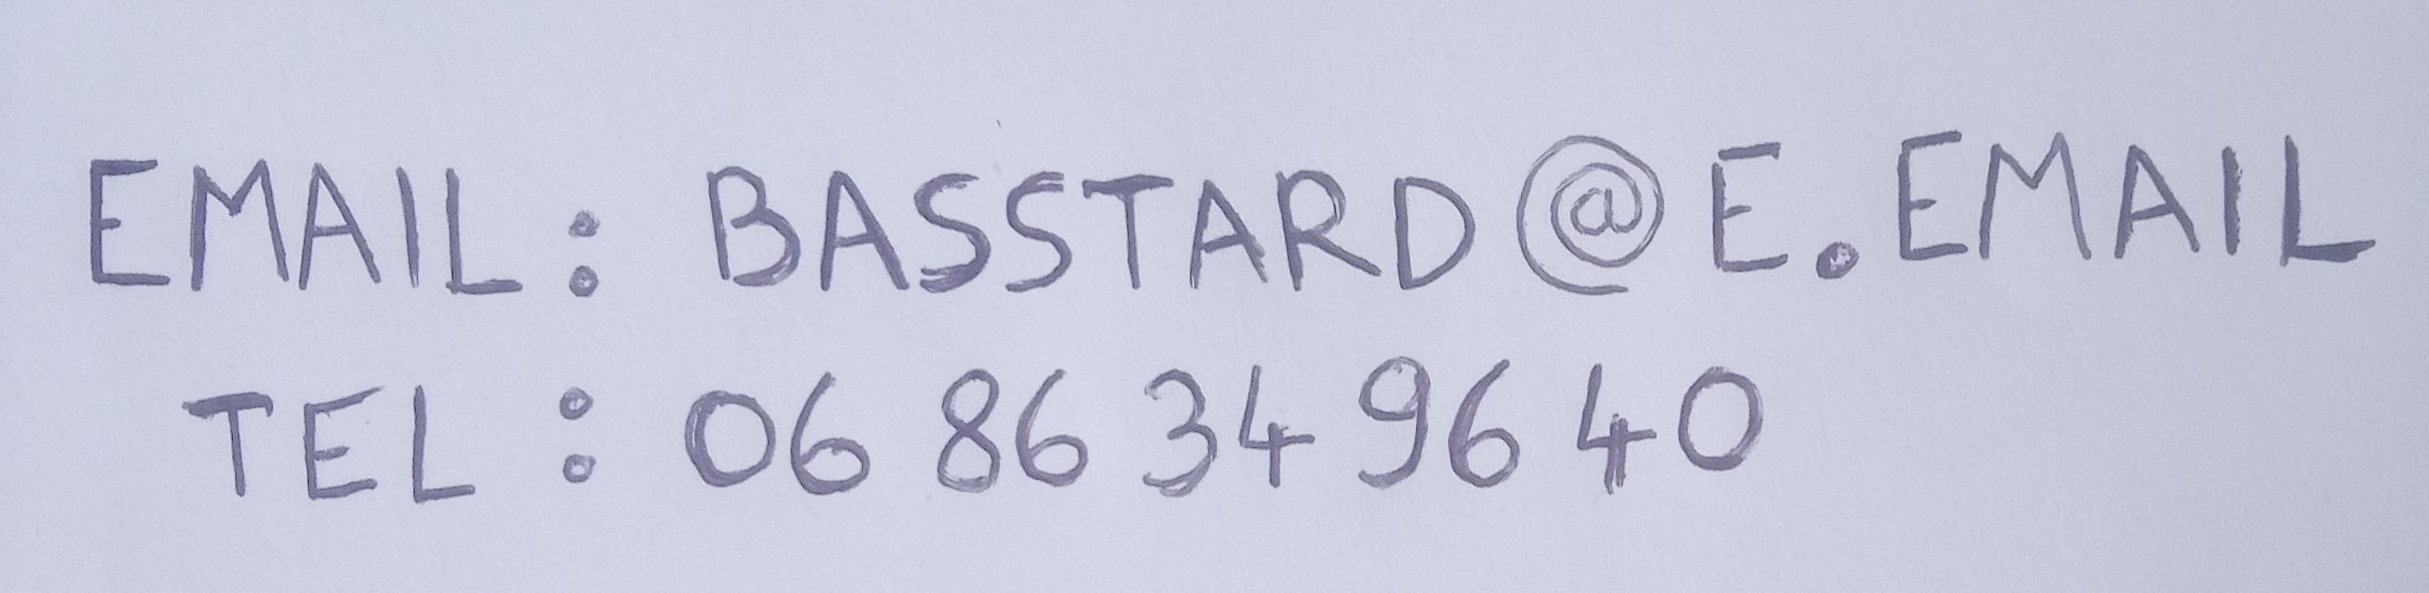 EMAIL: BASSTARD@E.EMAIL
TEL: 06 86 34 96 40